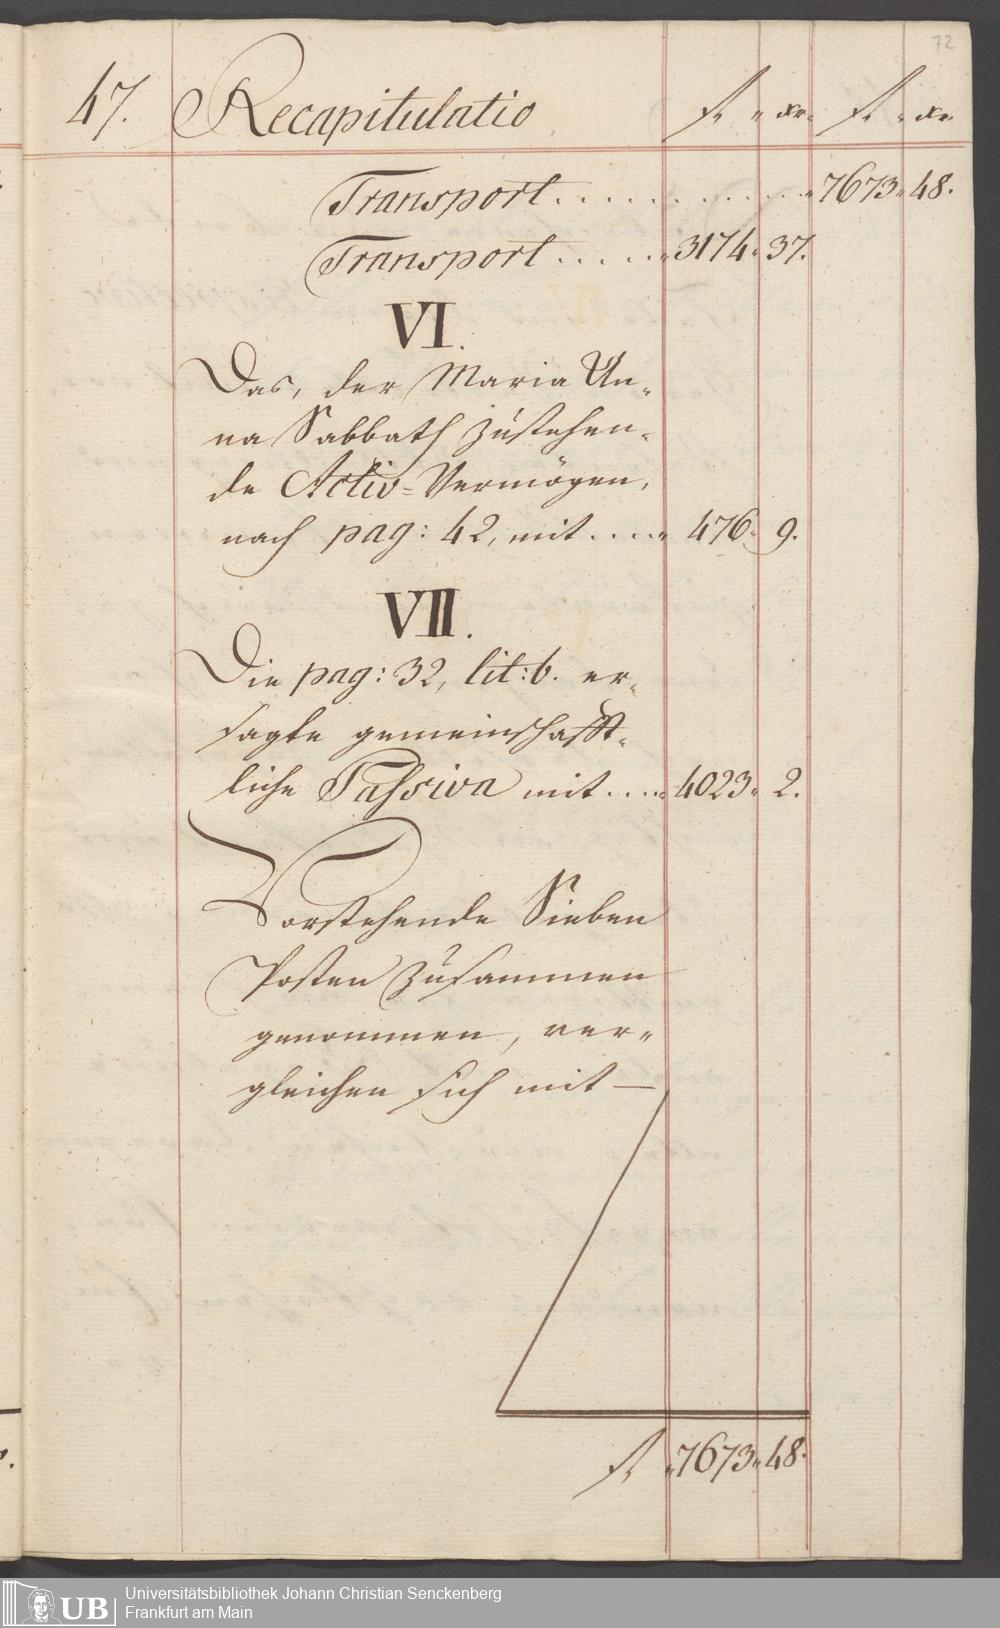 72
47. Recapitulatio f. " xr. f. " xr.
Transport . . . . . . . . . . . . " 7673 " 48.
Transport . . . . . " 3174 " 37.
VI.
Das, der Maria An-
na Sabbath zustehen-
de Activ=Vermögen,
nach pag: 42, mit . . . . " 476 " 9.
VII.
Die pag: 32, lit: b. er-
sagte gemeinschafft-
liche Passiva mit . . . . " 4023 " 2.
Vorstehende Sieben
Posten zusammen
genommen, ver-
gleichen sich mit —
f. " 7673 " 48.
UB Universitätsbibliothek Johann Christian Senckenberg
Frankfurt am Main